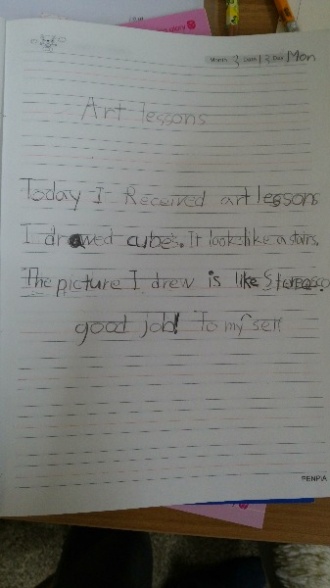 Mon
Art lessons
Today I Received art lessons
I drawed cubes. It looks like a stairs.
The picture I drew is like
good job! To my self
PENPIA